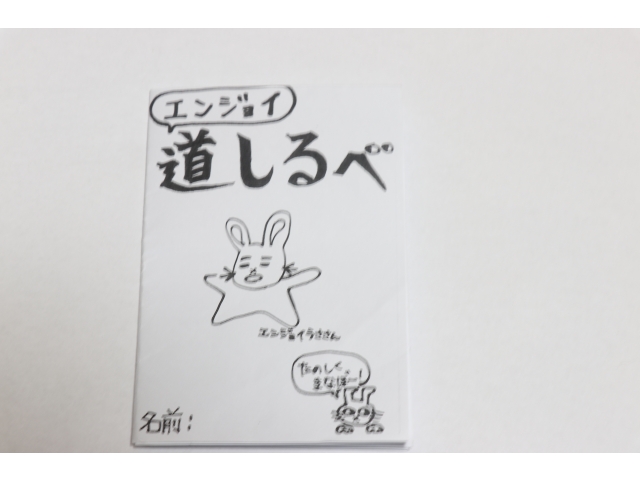 エンジョイ
道しるべ
エンジョイうささん
たのしく、
まなぼー!
名前: